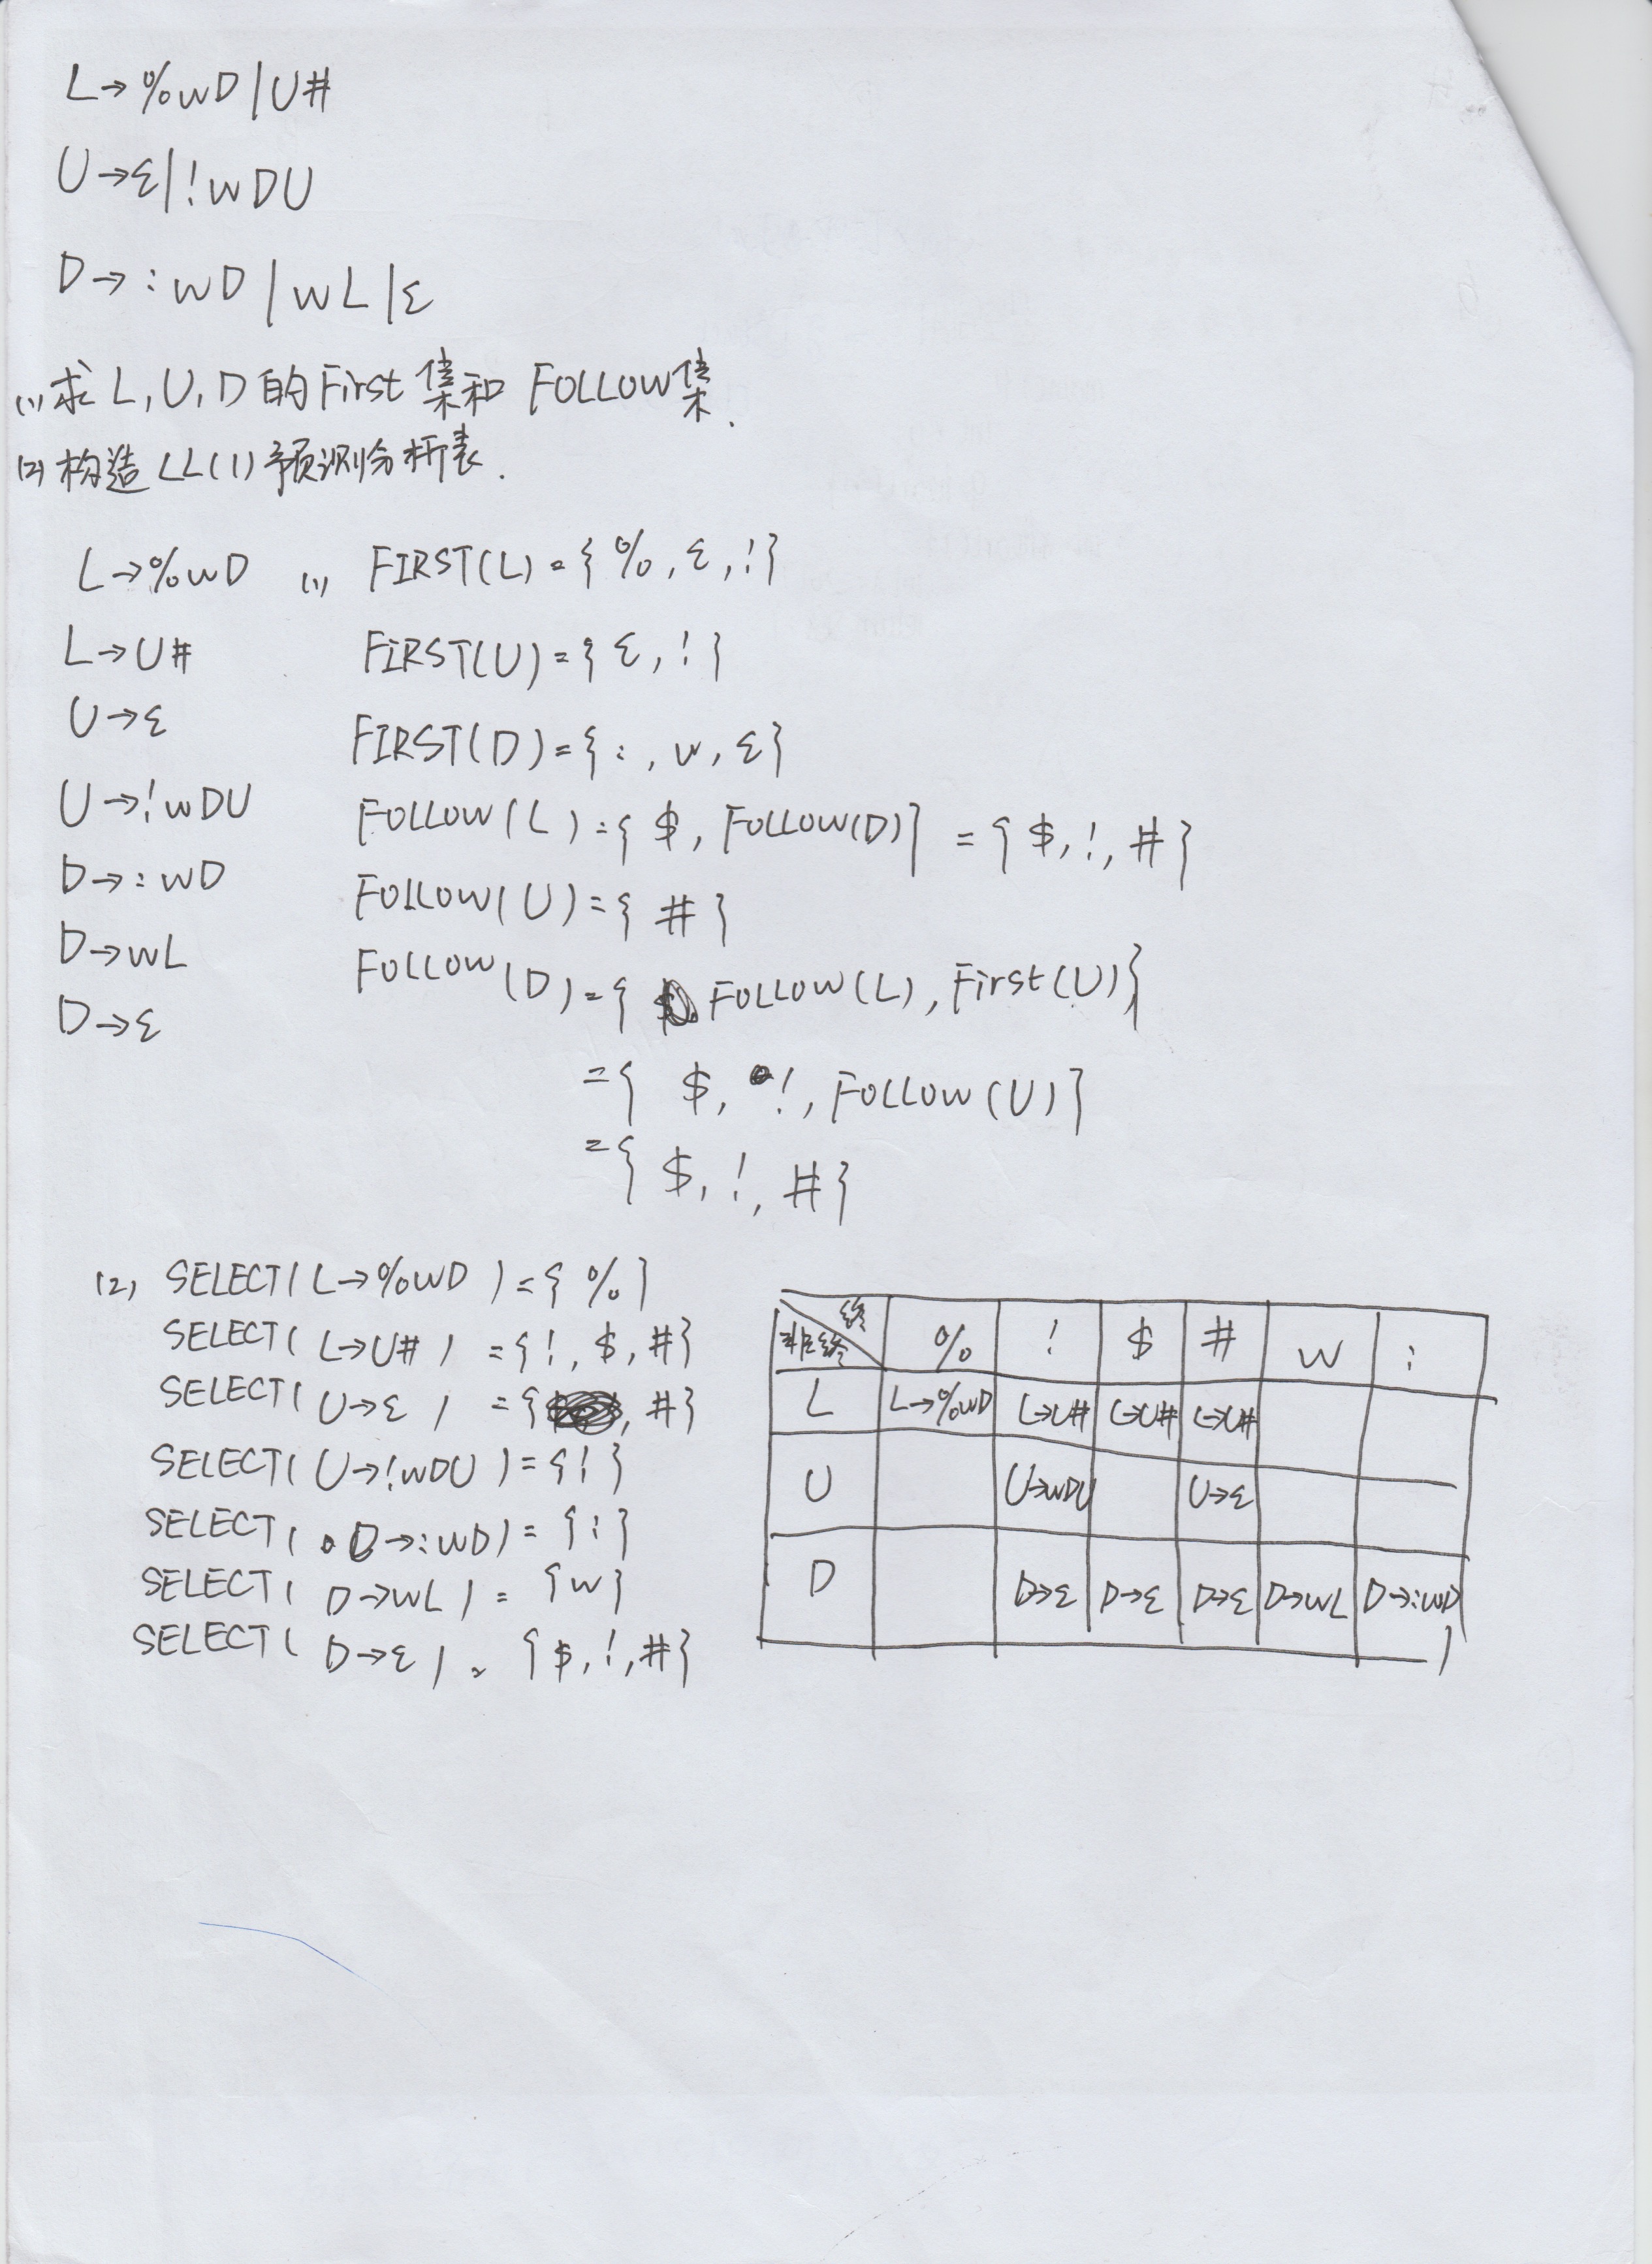 L→%wD|U#
U→ε|!wDU
D→:wD|wL|ε
(1)求L,U,D的First集和FOLLOW集.
(2)构造LL(1)预测分析表.
L→%wD (1) FIRST(L)={%,ε,!}
L→U# FIRST(U)={ε,!}
U→ε FIRST(D)={:,w,ε}
U→!wDU FOLLOW(L)={$,FOLLOW(D)}={$,!,#}
D→:wD FOLLOW(U)={#}
D→wL FOLLOW(D)={FOLLOW(L),First(U)}
D→ε
={$,!,FOLLOW(U)}
={$,!,#}
(2) SELECT(L→%wD)={%}
SELECT(L→U#)={!,$,#}
SELECT(U→ε)={,#}
SELECT(U→!wDU)={!}
SELECT(D→:wD)={:}
SELECT(D→wL)={w}
SELECT(D→ε)={$,!,#}
终
非终 % ! $ # w :
L L→%wD L→U# L→U# L→U#
U U→wDU U→ε
D D→ε D→ε D→ε D→wL D→:wD